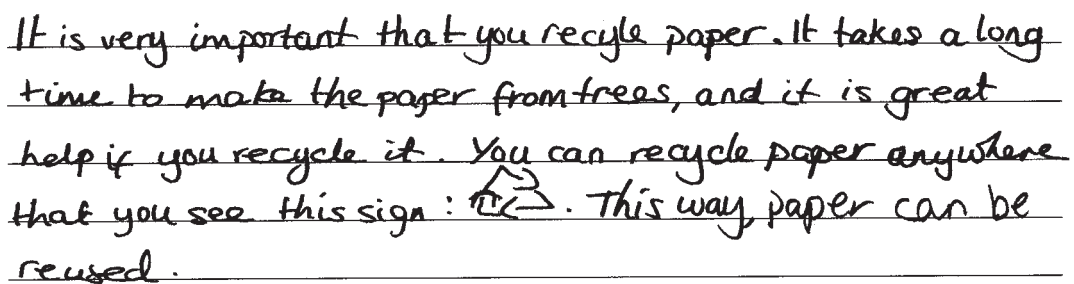 It is very important that you recyle paper. It takes a long
time to make the paper from trees, and it is great
help if you recycle it. You can recycle paper anywhere
that you see this sign: ♺. This way, paper can be
reused.